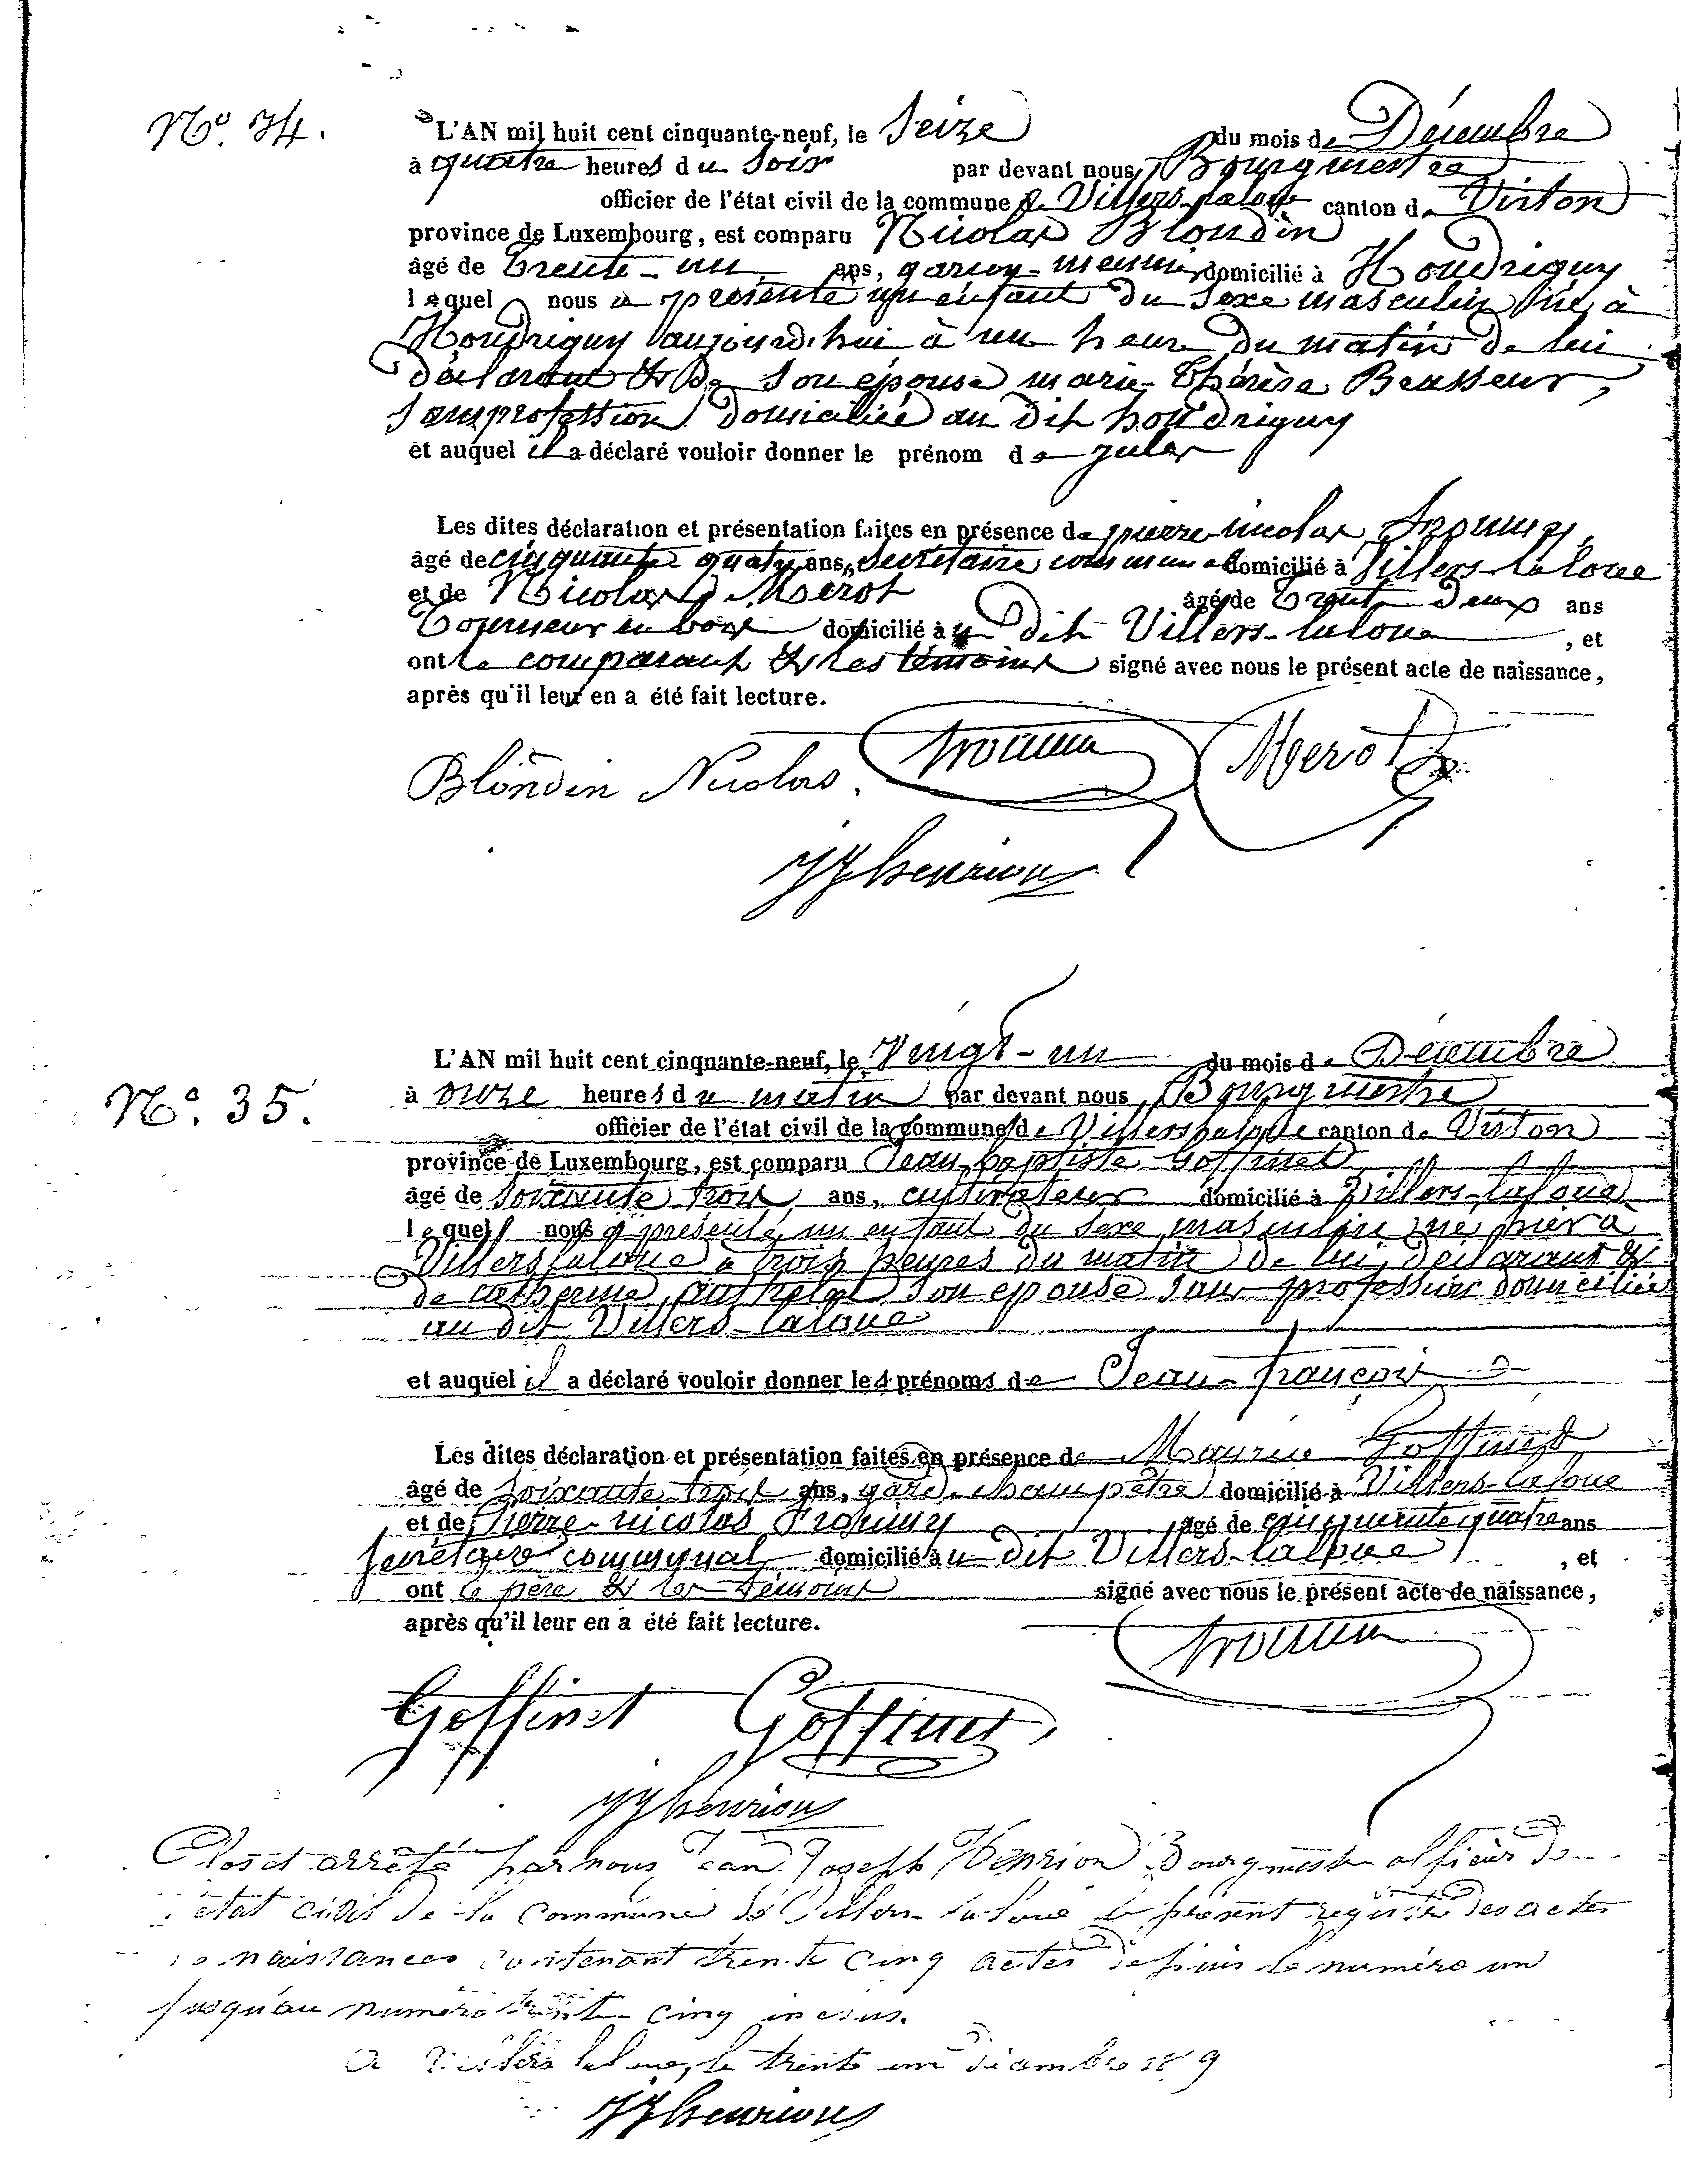 N.º 34.
L'AN mil huit cent cinquante-neuf, le Seize du mois de Décembre
à quatre heures du Soir par devant nous, Bourgmestre
officier de l'état civil de la commune de Villers-laloue canton de Virton
province de Luxembourg, est comparu Nicolas Blondin
âgé de trente-un ans, garçon-meunier domicilié à Houdrigny
lequel nous a présenté un enfant du sexe masculin né à
Houdrigny aujourd'hui à une heure du matin de lui
déclarant & de son épouse marie-Thérèse Brasseur,
sans profession domiciliée au dit houdrigny
et auquel il a déclaré vouloir donner le prénom de jules
Les dites déclaration et présentation faites en présence de pierre-nicolas
âgé de cinquante quatre ans, Secrétaire communal domicilié à Villers-laloue
et de Nicolas Merot âgé de trente deux ans
Tourneur en bois domicilié au dit Villers-laloue, et
ont le comparant & les témoins signé avec nous le présent acte de naissance,
après qu'il leur en a été fait lecture.
Blondin Nicolas. Merot
JJhenrion
N.º 35.
L'AN mil huit cent cinquante-neuf, le Vingt-un du mois de Décembre
à onze heures du matin par devant nous, Bourgmestre
officier de l'état civil de la commune de Villers-laloue canton de Virton
province de Luxembourg, est comparu Jean-baptiste Goffinet
âgé de soixante trois ans, cultivateur domicilié à Villers-laloue
lequel nous a présenté un enfant du sexe masculin né hier à
Villers-laloue à trois heures du matin de lui déclarant &
de catherine son épouse sans profession domiciliée
au dit Villers-laloue
et auquel il a déclaré vouloir donner les prénoms de Jean-françois
Les dites déclaration et présentation faites en présence de Maurice Goffinet,
âgé de soixante-trois ans, garde-champêtre domicilié à Villers-laloue
et de Pierre-nicolas âgé de cinquante quatre ans
secrétaire communal domicilié au dit Villers-laloue, et
ont le père & les témoins signé avec nous le présent acte de naissance,
après qu'il leur en a été fait lecture.
Goffinet Goffinet
JJhenrion
Clos et arrêté par nous Jean Joseph Henrion Bourgmestre officier de
état civil de la commune de Villers-la-loue le présent registre des actes
de naissances contenant trente cinq actes depuis le numéro un
jusqu'au numéro trente cinq inclus.
a Villers laloue, le trente un décembre 1859
JJhenrion